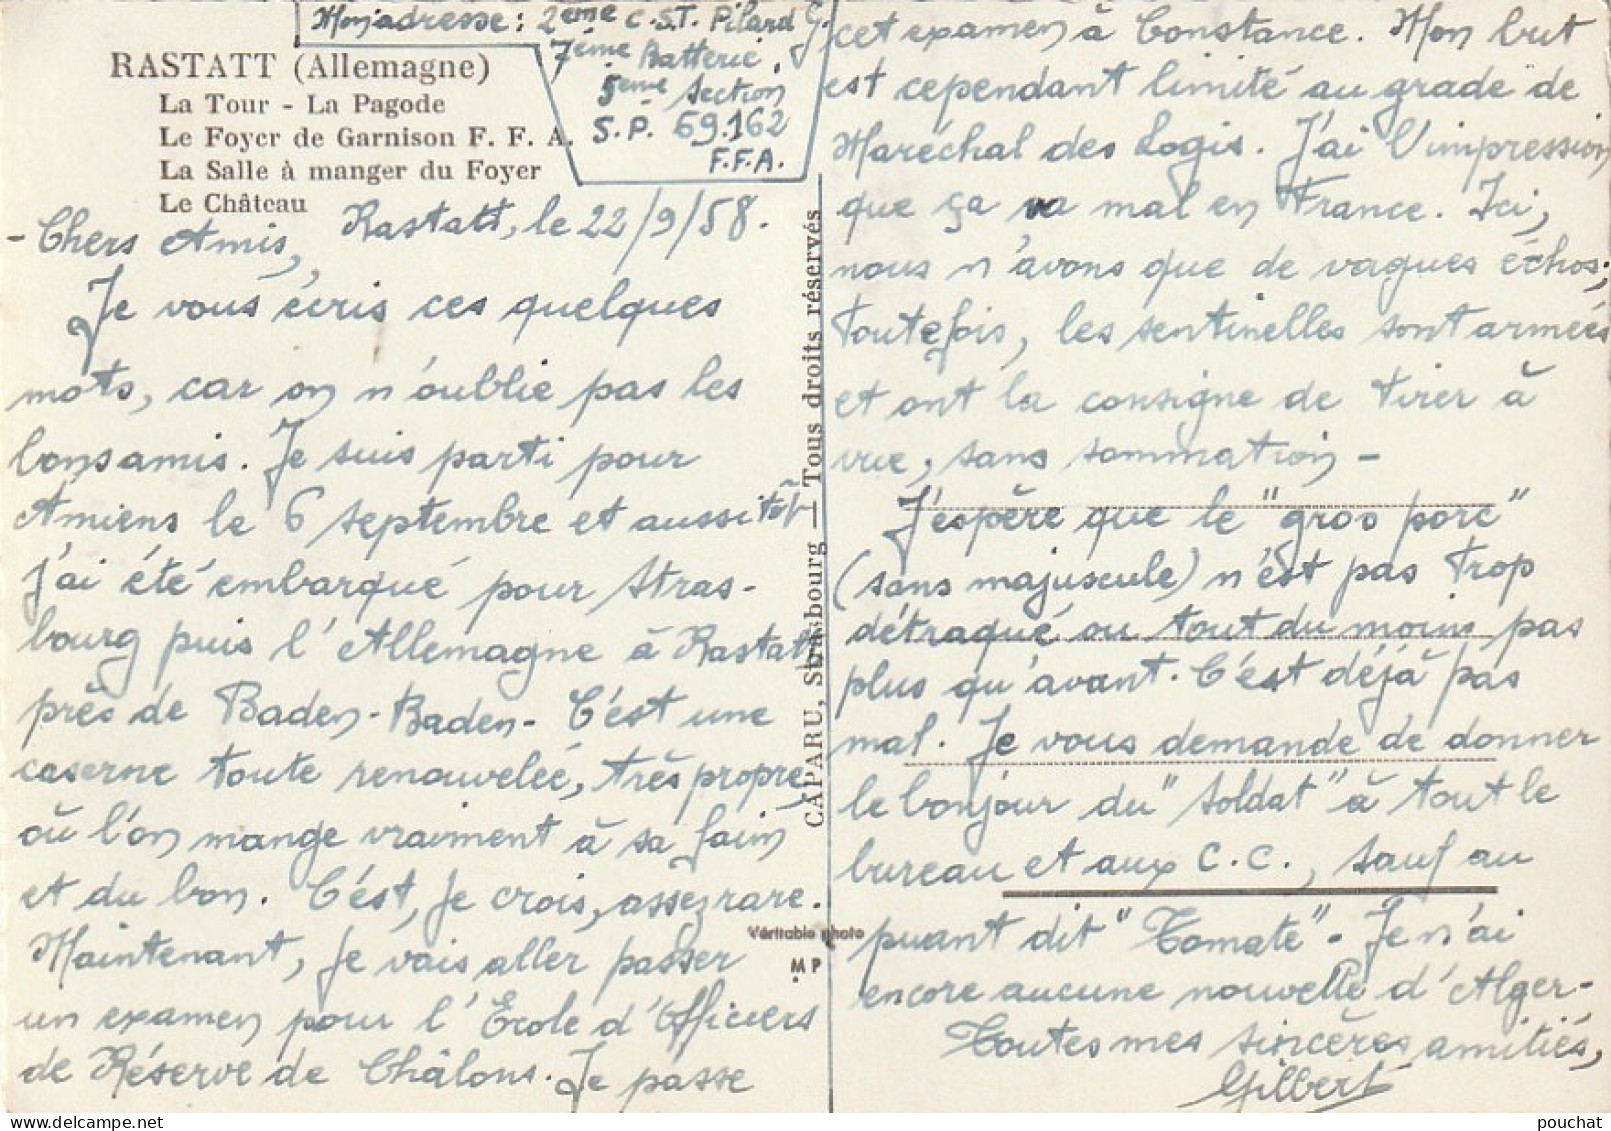 Mon adresse: 2ème C.S.T. Pilard G.
7ème Batterie,
5ème Section
S.P. 69.162
F.F.A.
RASTATT (Allemagne)
La Tour - La Pagode
Le Foyer de Garnison F. F. A.
La Salle à manger du Foyer
Le Château
Rastatt, le 22/9/58.
- Chers Amis,
Je vous écris ces quelques
mots, car on n'oublie pas les
bons amis. Je suis parti pour
Amiens le 6 septembre et aussitôt
j'ai été embarqué pour Stras-
bourg puis l'Allemagne à Rastatt
près de Baden-Baden- C'est une
caserne toute renouvelée, très propre,
où l'on mange vraiment à sa faim
et du bon. C'est, je crois, assez rare.
Maintenant, je vais aller passer
un examen pour l'École d'Officiers
de Réserve de Châlons. Je passe
CAPARU, Strasbourg — Tous droits réservés
Véritable photo
MP
cet examen à Constance. Mon but
est cependant limité au grade de
Maréchal des Logis. J'ai l'impression
que ça va mal en France. Ici,
nous n'avons que de vagues échos;
toutefois, les sentinelles sont armées
et ont la consigne de tirer à
vue, sans sommation -
J'espère que le "gros porc"
(sans majuscule) n'est pas trop
détraqué ou tout du moins pas
plus qu'avant. C'est déjà pas
mal. Je vous demande de donner
le bonjour du "Soldat" à tout le
bureau et aux C.C., sauf au
puant dit "Tomate" - Je n'ai
encore aucune nouvelle d'Alger-
Toutes mes sincères amitiés,
Gilbert
pouchat